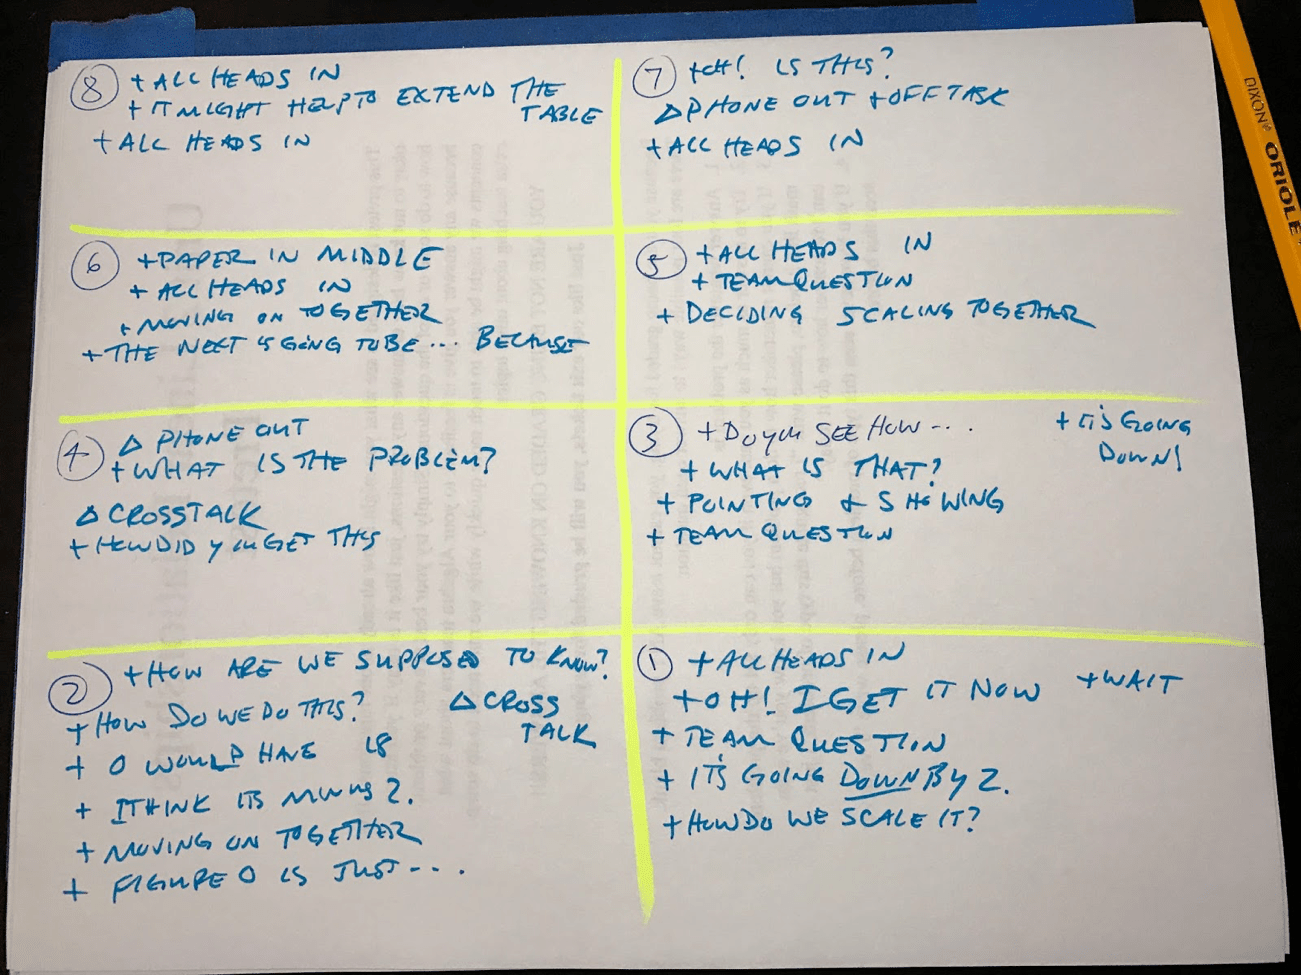 8 + ALL HEADS IN
+ IT MIGHT HELP TO EXTEND THE
TABLE
+ ALL HEADS IN
7 + OH! IS THIS?
Δ PHONE OUT + OFF TASK
+ ALL HEADS IN
6 + PAPER IN MIDDLE
+ ALL HEADS IN
+ MOVING ON TOGETHER
+ THE NEXT IS GOING TO BE ... BECAUSE
5 + ALL HEADS IN
+ TEAM QUESTION
+ DECIDING SCALING TOGETHER
4 Δ PHONE OUT
+ WHAT IS THE PROBLEM?
Δ CROSSTALK
+ HOW DID YOU GET THIS
3 + DO YOU SEE HOW ...
+ IT'S GOING
DOWN!
+ WHAT IS THAT?
+ POINTING & SHOWING
+ TEAM QUESTION
2 + HOW ARE WE SUPPOSED TO KNOW?
+ HOW DO WE DO THIS?
Δ CROSS
TALK
+ 0 WOULD HAVE 18
+ I THINK ITS MINUS 2.
+ MOVING ON TOGETHER
+ FIGURE 0 IS JUST ...
1 + ALL HEADS IN
+ OH! I GET IT NOW + WAIT
+ TEAM QUESTION
+ IT'S GOING DOWN BY 2.
+ HOW DO WE SCALE IT?
DIXON ORIOLE